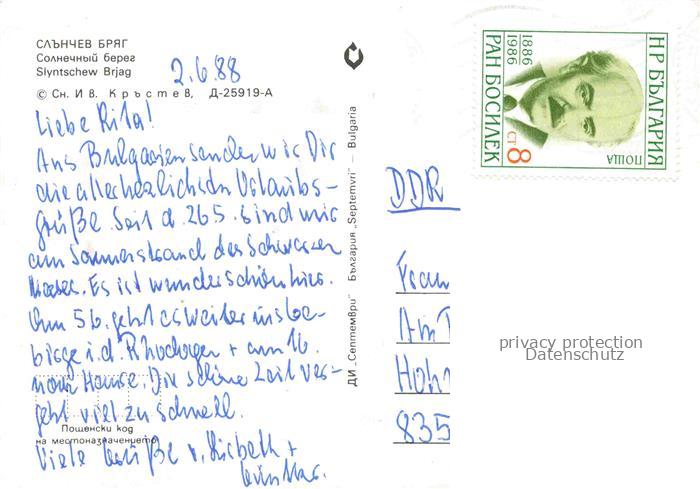 СЛЪНЧЕВ БРЯГ
Солнечный берег
Slyntschew Brjag
2.6.88
© Сн. Ив. Кръстев, Д-25919-А
Liebe Rita!
Aus Bulgarien senden wir Dir
die allerherzlichsten Urlaubs-
grüße. Seit d. 26.5. sind wir
am Sonnenstrand des Schwarzen
Meeres. Es ist wunderschön hier.
Am 5.6. geht es weiter ins Ge-
birge i. d. Rhodopen + am 16.
nach Hause. Die schöne Zeit ver-
geht viel zu schnell.
Viele Grüße v. Lisbeth +
Günther.
Пощенски код
на местоназначението
ДИ „Септември" България „Septemvri" – Bulgaria
НР БЪЛГАРИЯ
ПОЩА
8 СТ
1886
1986
РАН БОСИЛЕК
DDR
Frau
Am
835
privacy protection
Datenschutz